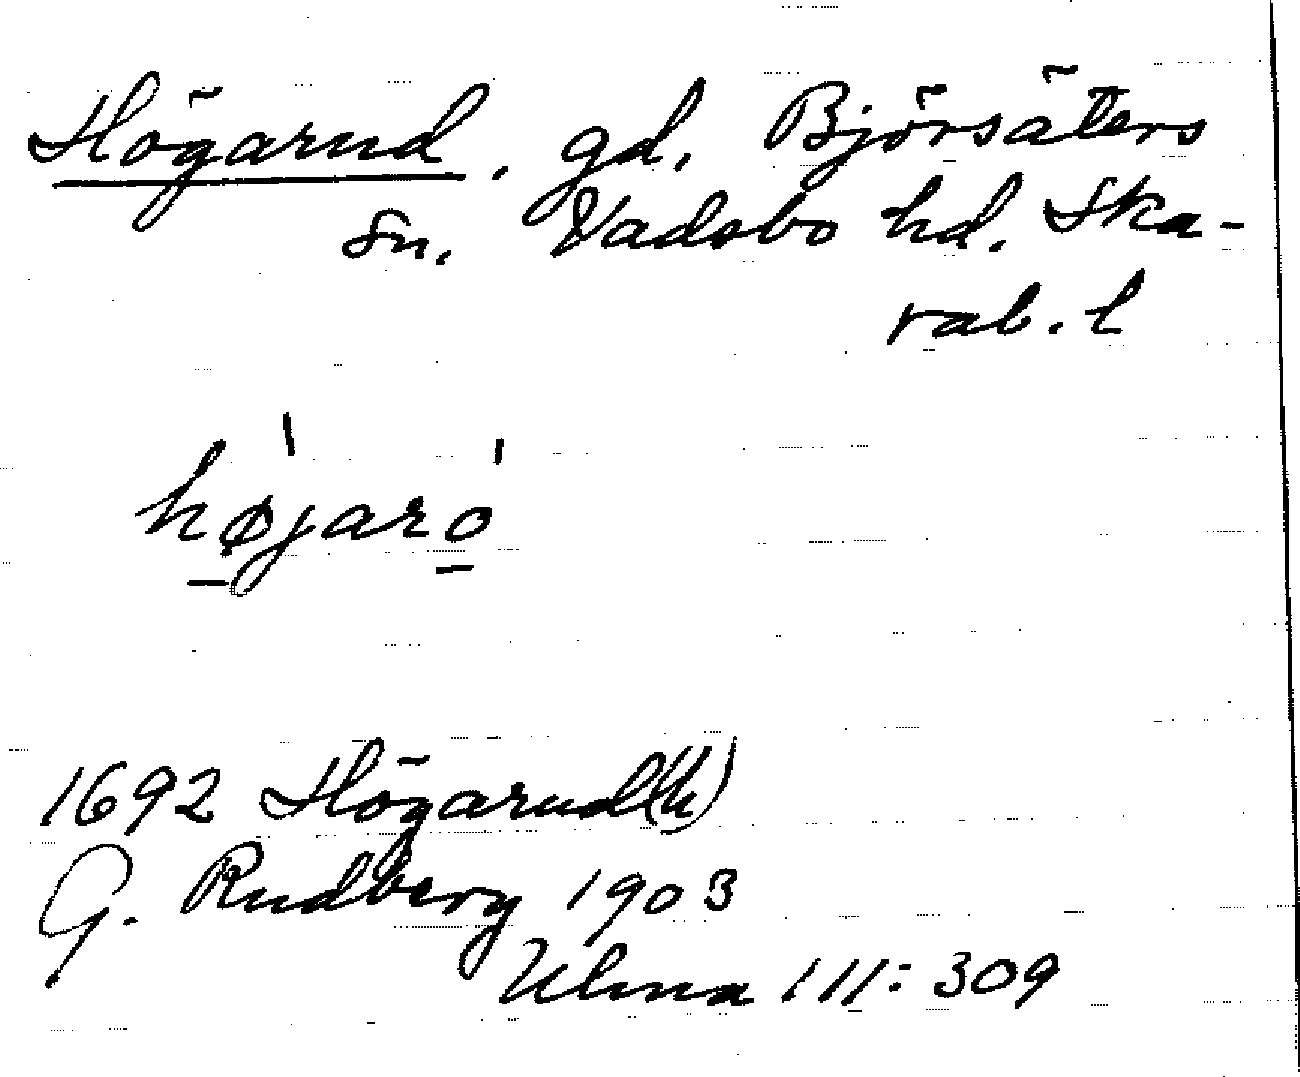 Högarud, gd. Björsäters
sn. Vadsbo hd. Ska-
rab. l
hø̱jaro̱
1692 Högarud(h)
G. Rudberg 1903
Ulma 111: 309